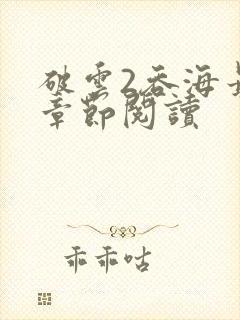 破雲2吞海最
章節閱讀
乖乖咕